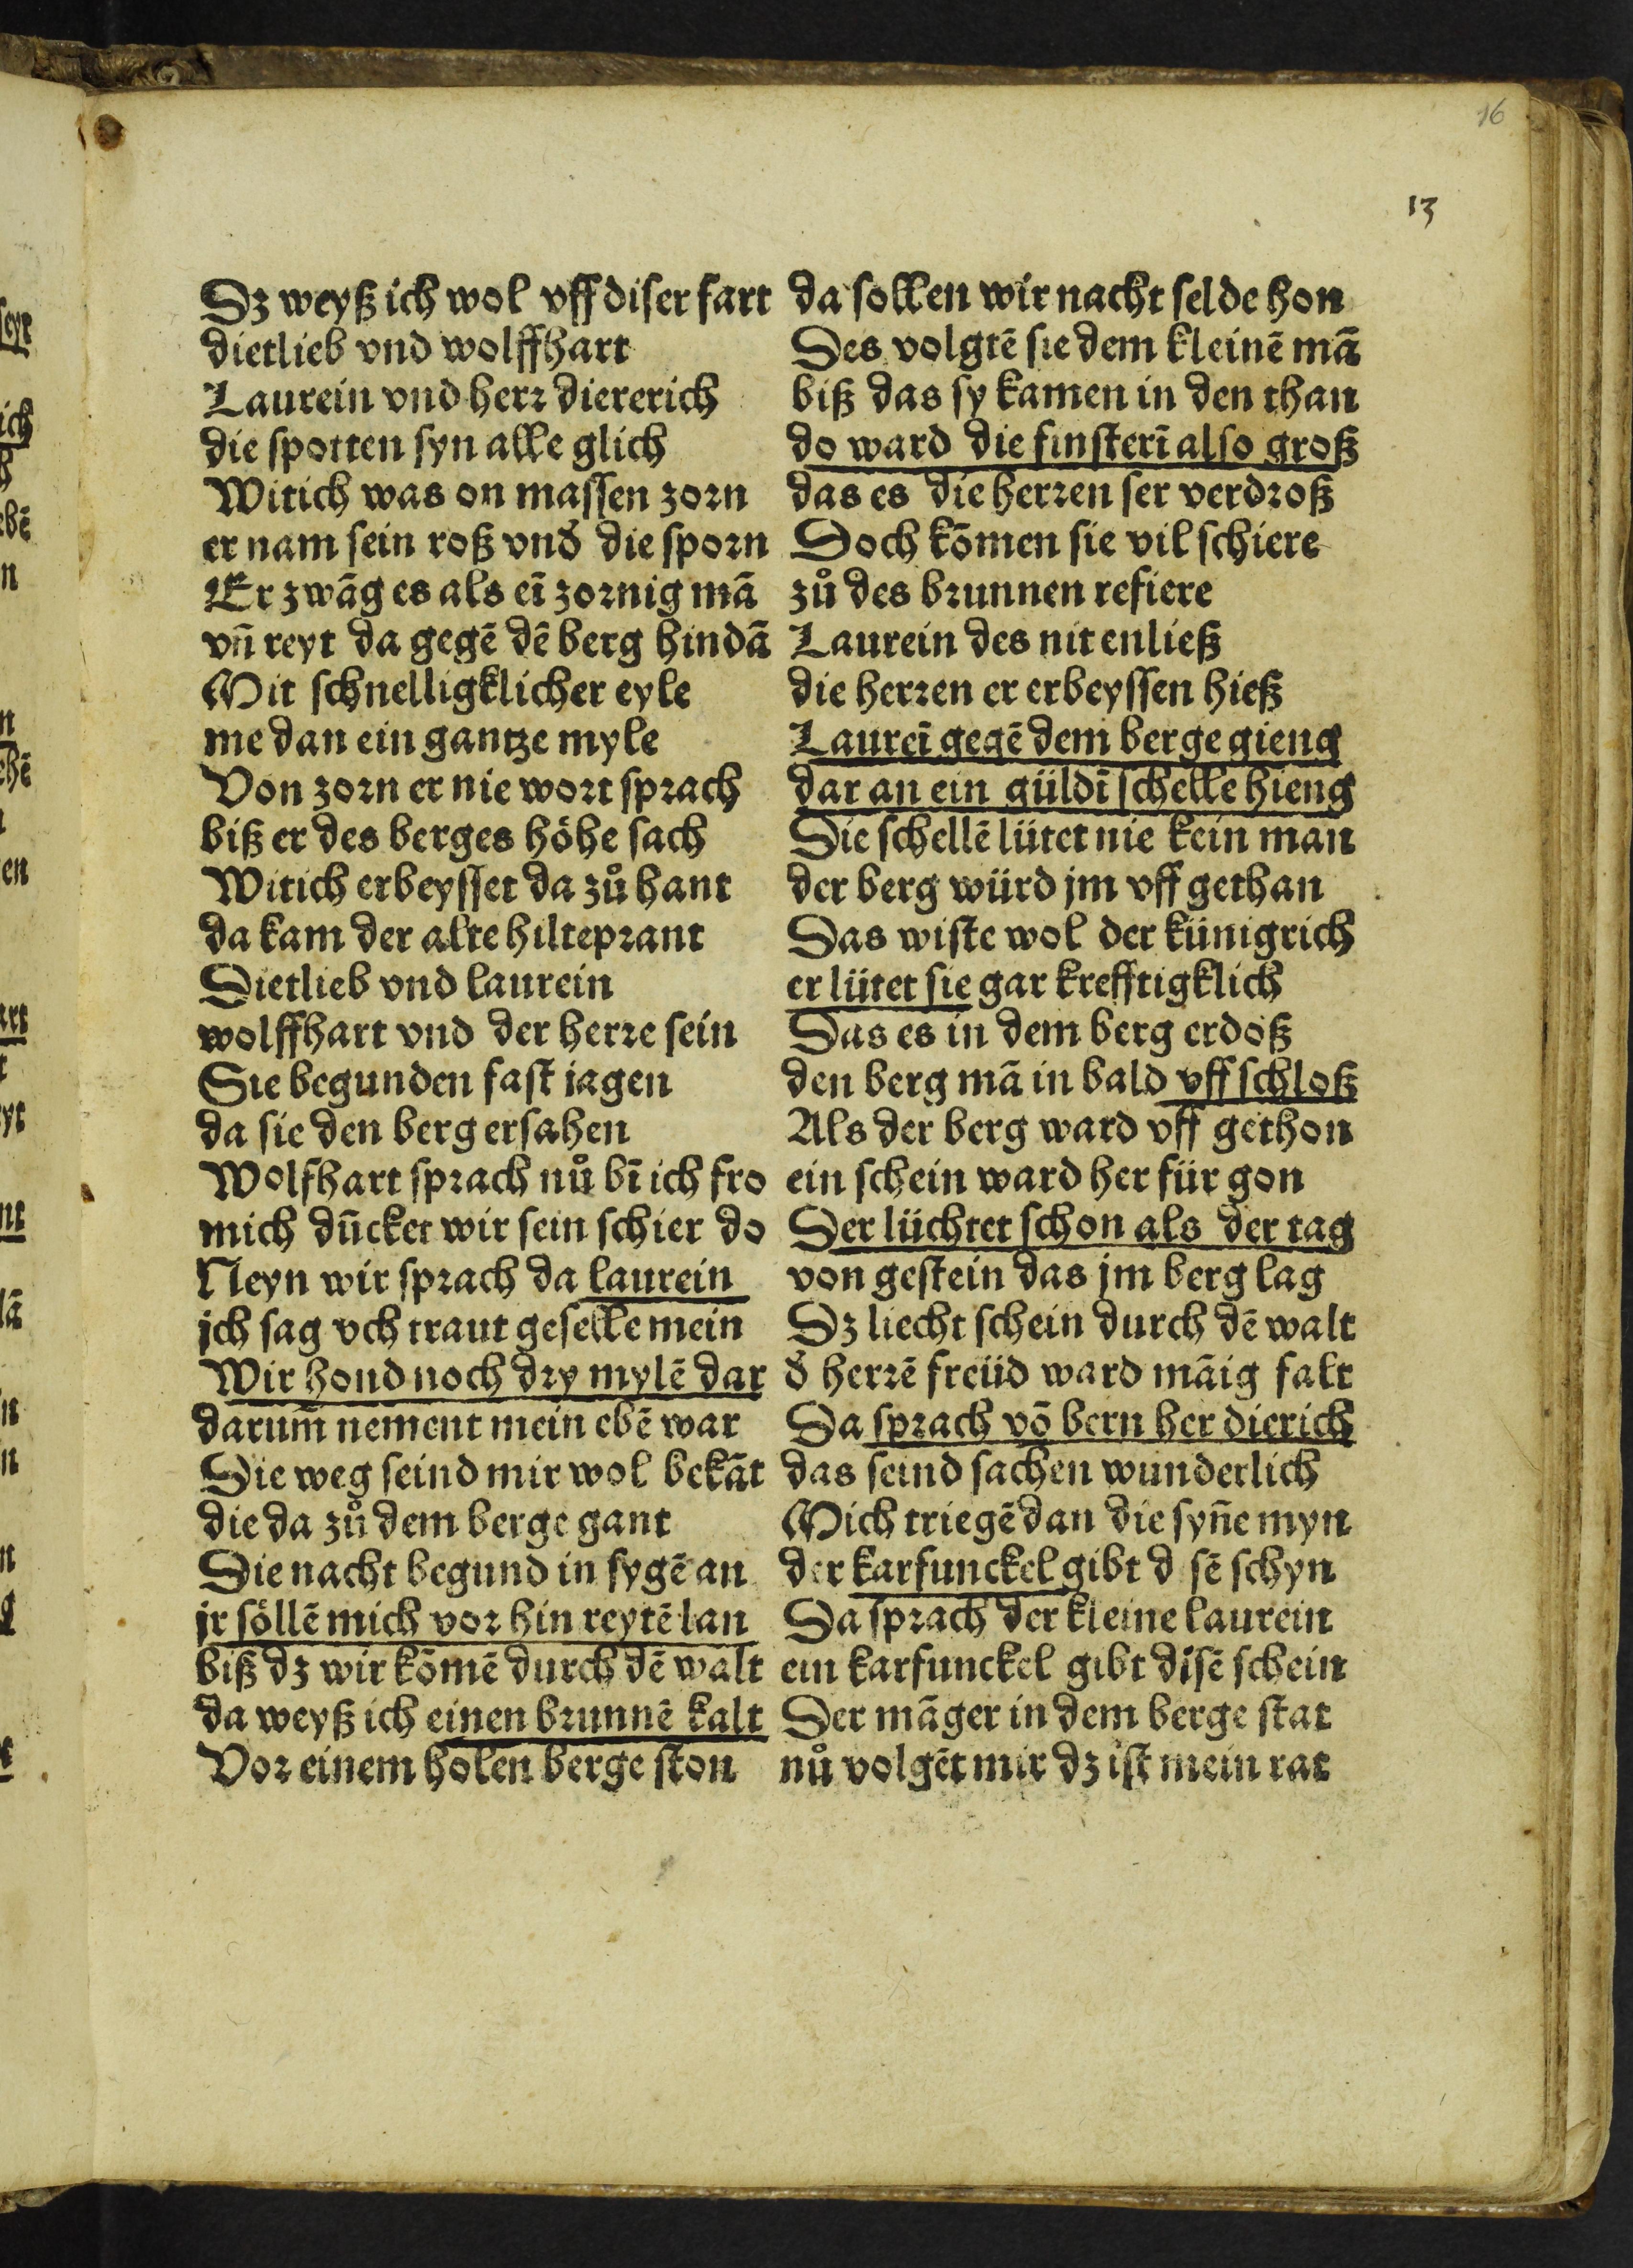 16
13
Dz weyß ich wol vff diser fart
dietlieb vnd wolffhart
Laurein vnd herr diererich
die spotten syn alle glich
Witich was on massen zorn
er nam sein roß vnd die sporn
Er zwāg es als eī zornig mā
vn̄ reyt da gegē dē berg hindā
Mit schnelligklicher eyle
me dan ein gantze myle
Von zorn er nie wort sprach
biß er des berges höhe sach
Witich erbeysset da zů hant
da kam der alte hilteprant
Dietlieb vnd laurein
wolffhart vnd der herre sein
Sie begunden fast iagen
da sie den berg ersahen
Wolfhart sprach nů bī ich fro
mich dūcket wir sein schier do
Neyn wir sprach da laurein
jch sag vch traut geselle mein
Wir hond noch dry mylē dar
darum̄ nement mein ebē war
Die weg seind mir wol bekāt
die da zů dem berge gant
Die nacht begund in sygē an
jr söllē mich vor hin reytē lan
biß dz wir kōmē durch dē walt
da weyß ich einen brunnē kalt
Vor einem holen berge ston
da sollen wir nacht selde hon
Des volgtē sie dem kleinē mā
biß das sy kamen in den than
do ward die finsterī also groß
das es die herren ser verdroß
Doch kōmen sie vil schiere
zů des brunnen refiere
Laurein des nit enließ
die herren er erbeyssen hieß
Laureī gegē dem berge gieng
dar an ein güldī schelle hieng
Die schellē lütet nie kein man
der berg würd jm vff gethan
Das wiste wol der künigrich
er lütet sie gar krefftigklich
Das es in dem berg erdoß
den berg mā in bald vff schloß
Als der berg ward vff gethon
ein schein ward her für gon
Der lüchtet schon als der tag
von gestein das jm berg lag
Dz liecht schein durch dē walt
đ herrē freüd ward māig falt
Da sprach vō bern her dierich
das seind sachen wunderlich
Mich triegē dan die syn̄e myn
der karfunckel gibt d sē schyn
Da sprach der kleine laurein
ein karfunckel gibt disē schein
Der māger in dem berge stat
nů volgēt mir dz ist mein rat